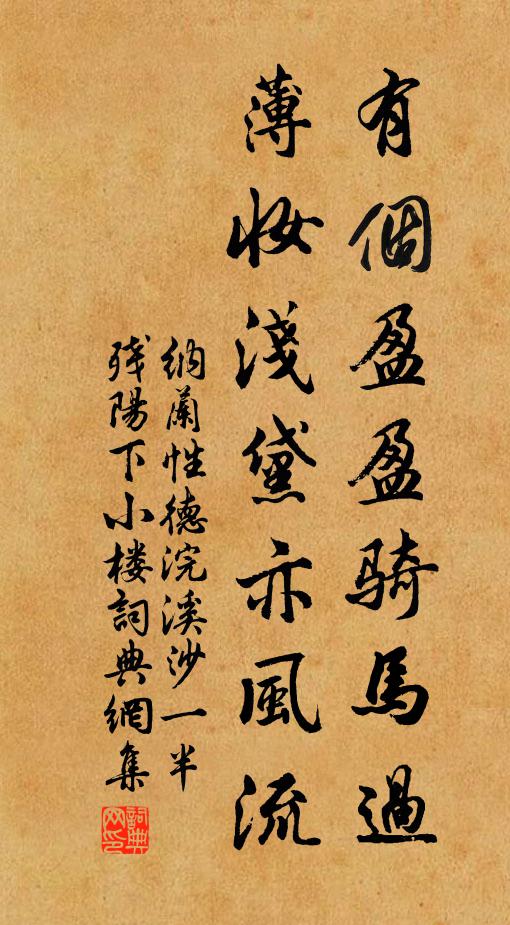 有個盈盈騎馬過
薄妝淺黛亦風流
納蘭性德浣溪沙一半
残陽下小楼詞典網集
詞典
网印